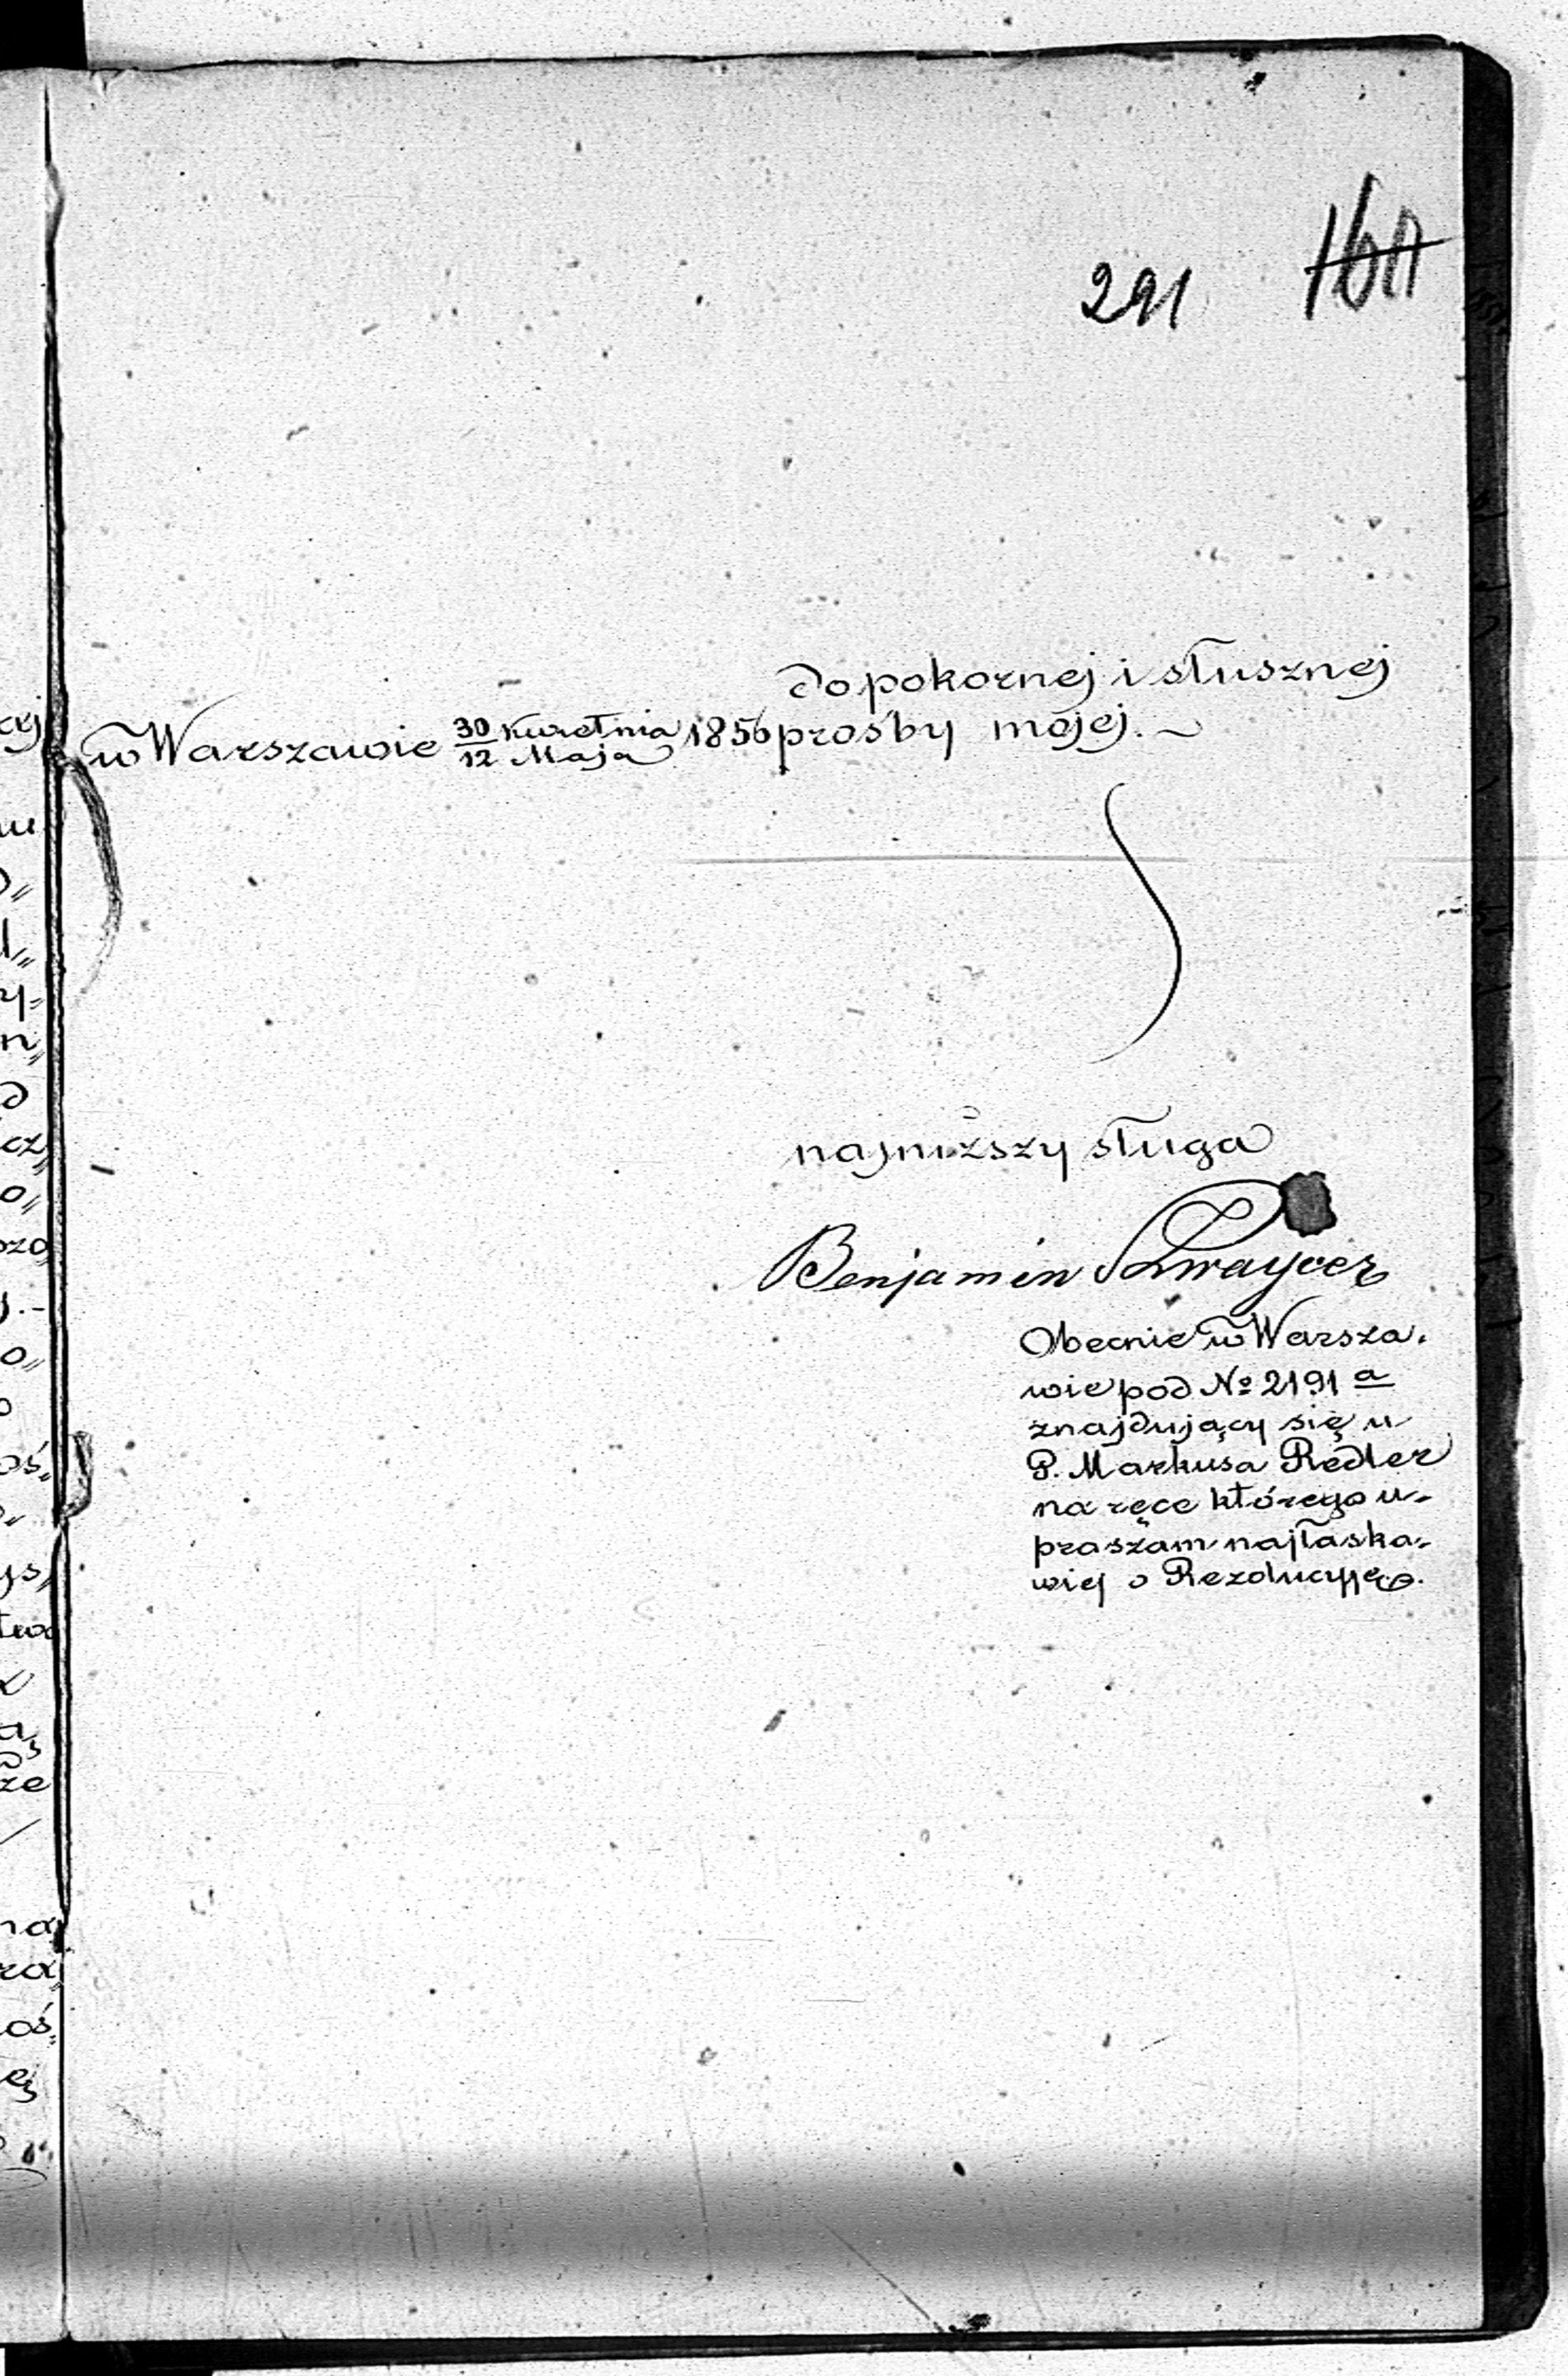 291
do pokornej i słusznej
w Warszawie 30 Kwietnia / 12 Maja 1856 prośby mojej.
najniższy sługa
Benjamin
Obecnie w Warsza-
wie pod № 2191 a
znajdujący się u
P. Markusa Redler
na ręce którego u-
praszam najłaska-
wiej o Rezolucyję.